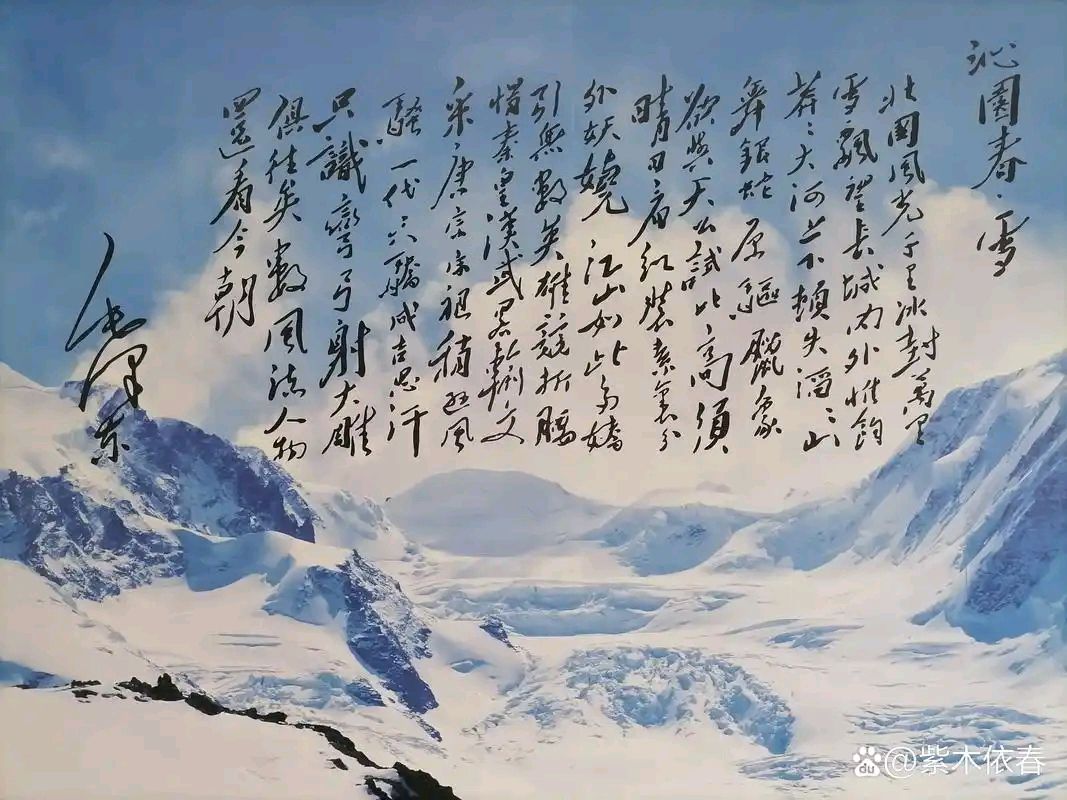 沁園春·雪
北國風光千里冰封萬里
雪飄望長城內外惟餘
莽〻大河上下頓失滔〻山
舞銀蛇 原驅臘象
欲與天公試比高須
晴日看紅裝素裹分
外妖嬈 江山如此多嬌
引無數英雄競折腰
惜秦皇漢武略輸文
采唐宗宋祖稍遜風
騷 一代天驕成吉思汗
只識彎弓射大雕
俱往矣數風流人物
還看今朝
毛澤東
du @紫木依春